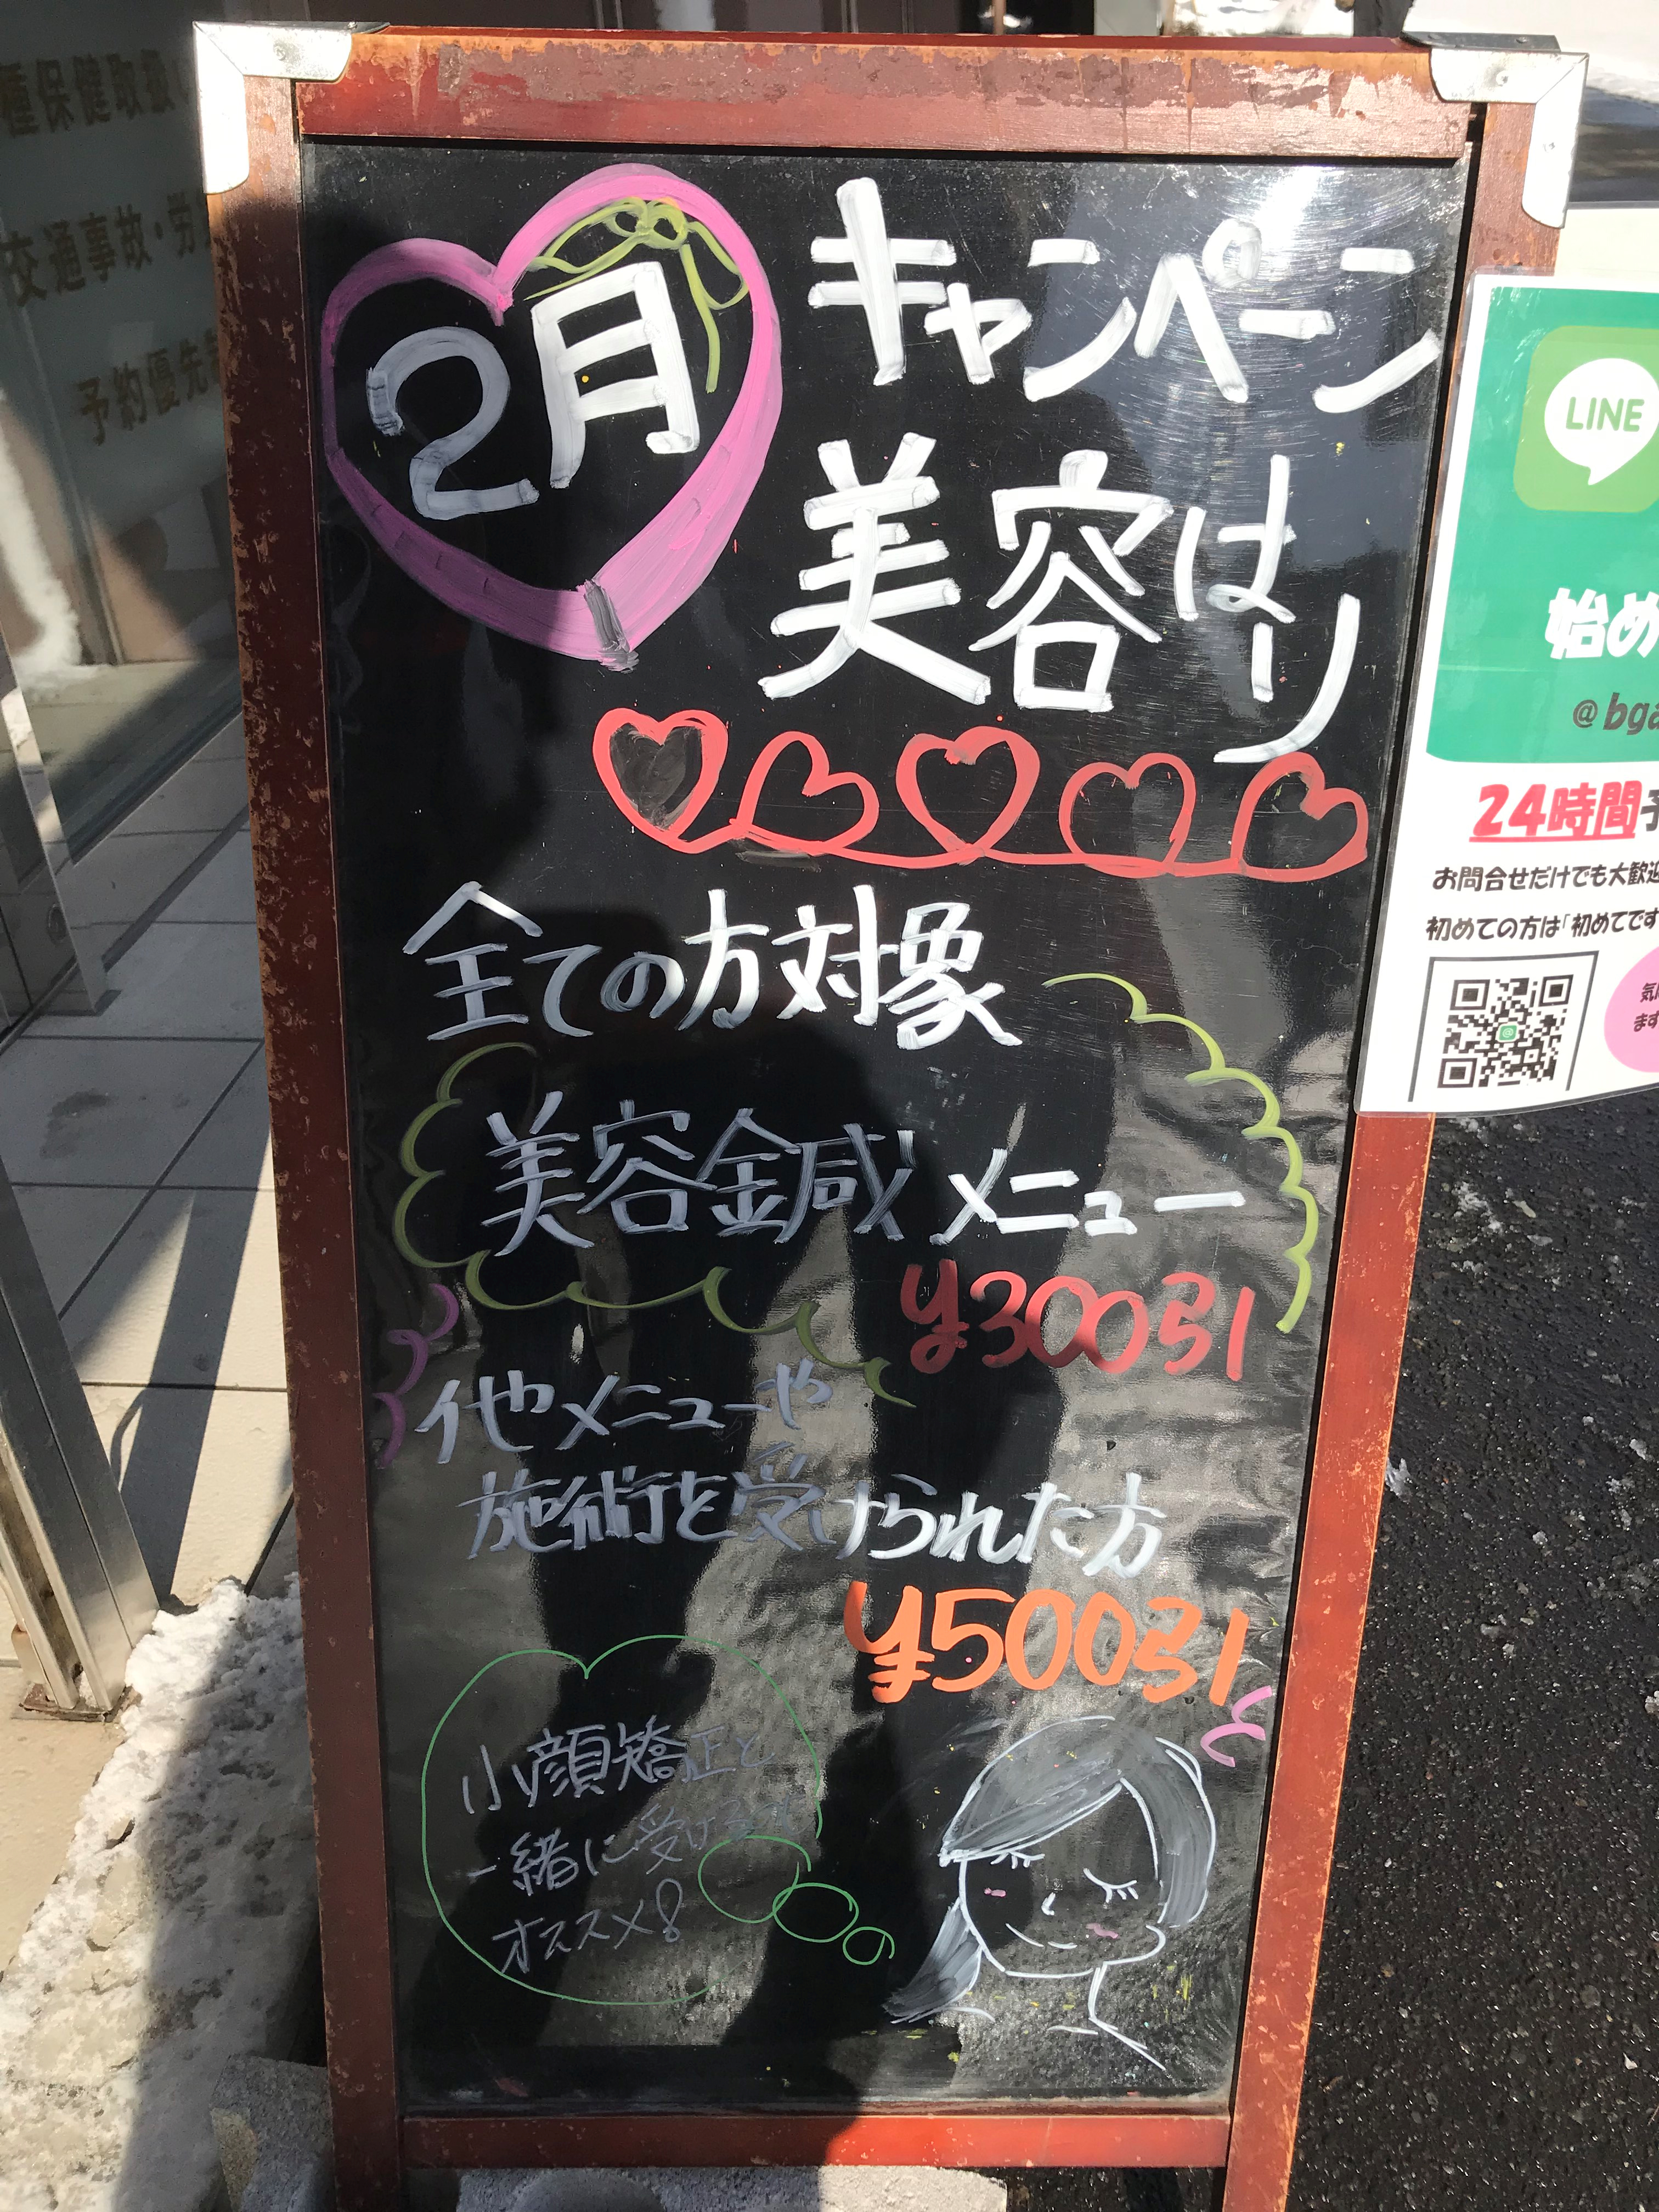 種保健取扱
交通事故・労
予約優先
2月
キャンペーン
美容はり
全ての方対象
美容鍼メニュー
¥300引
他メニューや
施術を受けられた方
¥500引
小顔矯正と
一緒に受けるのも
オススメ!
LINE
始め
@bga
24時間予
お問合せだけでも大歓迎
初めての方は「初めてです
気
ます